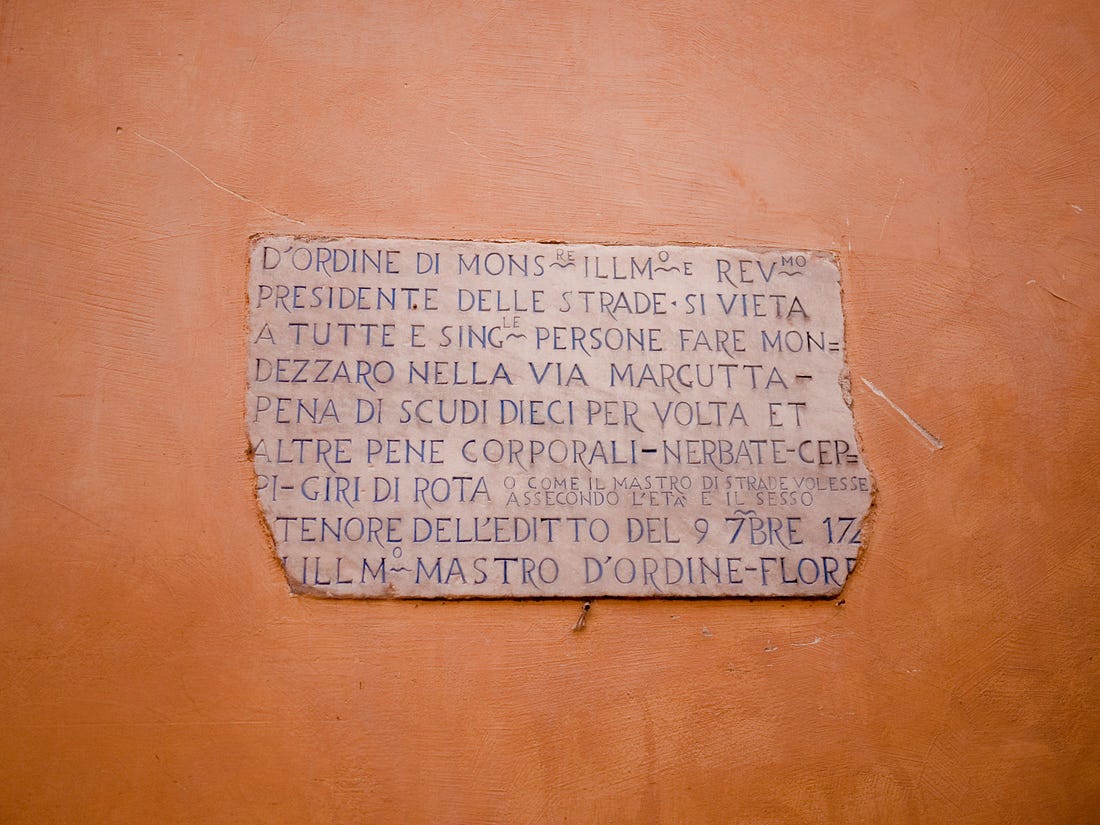 D'ORDINE DI MONSRE ILLMO E REVMO
PRESIDENTE DELLE STRADE·SI VIETA
A TUTTE E SINGLE PERSONE FARE MON=
DEZZARO NELLA VIA MARGUTTA-
PENA DI SCUDI DIECI PER VOLTA ET
ALTRE PENE CORPORALI-NERBATE-CEP=
PI-GIRI DI ROTA O COME IL MASTRO DI STRADE VOLESSE
ASSECONDO L'ETÀ E IL SESSO
TENORE DELL'EDITTO DEL 9 7BRE 172
ILLMO MASTRO D'ORDINE-FLORE